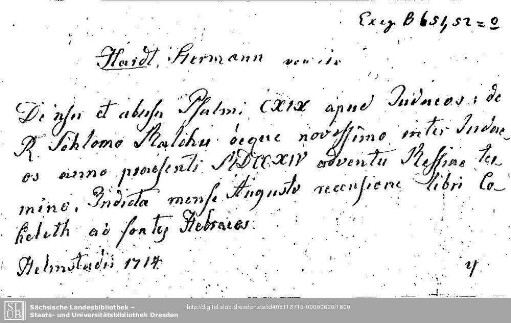 Exeg. B 651,52=0
Hardt, Hermann von der
De usu et abusu Psalmi CXIX apud Judaeos: de
R. Schlomo Malchu deque novissimo inter Judae
os anno praesenti MDCCXIV adventu Messiae ter
mino. Indicta mense Augusto recensione libri Co
heleth ad fontes Hebraeos.
Helmstadii 1714.
4
Sächsische Landesbibliothek –
Staats- und Universitätsbibliothek Dresden